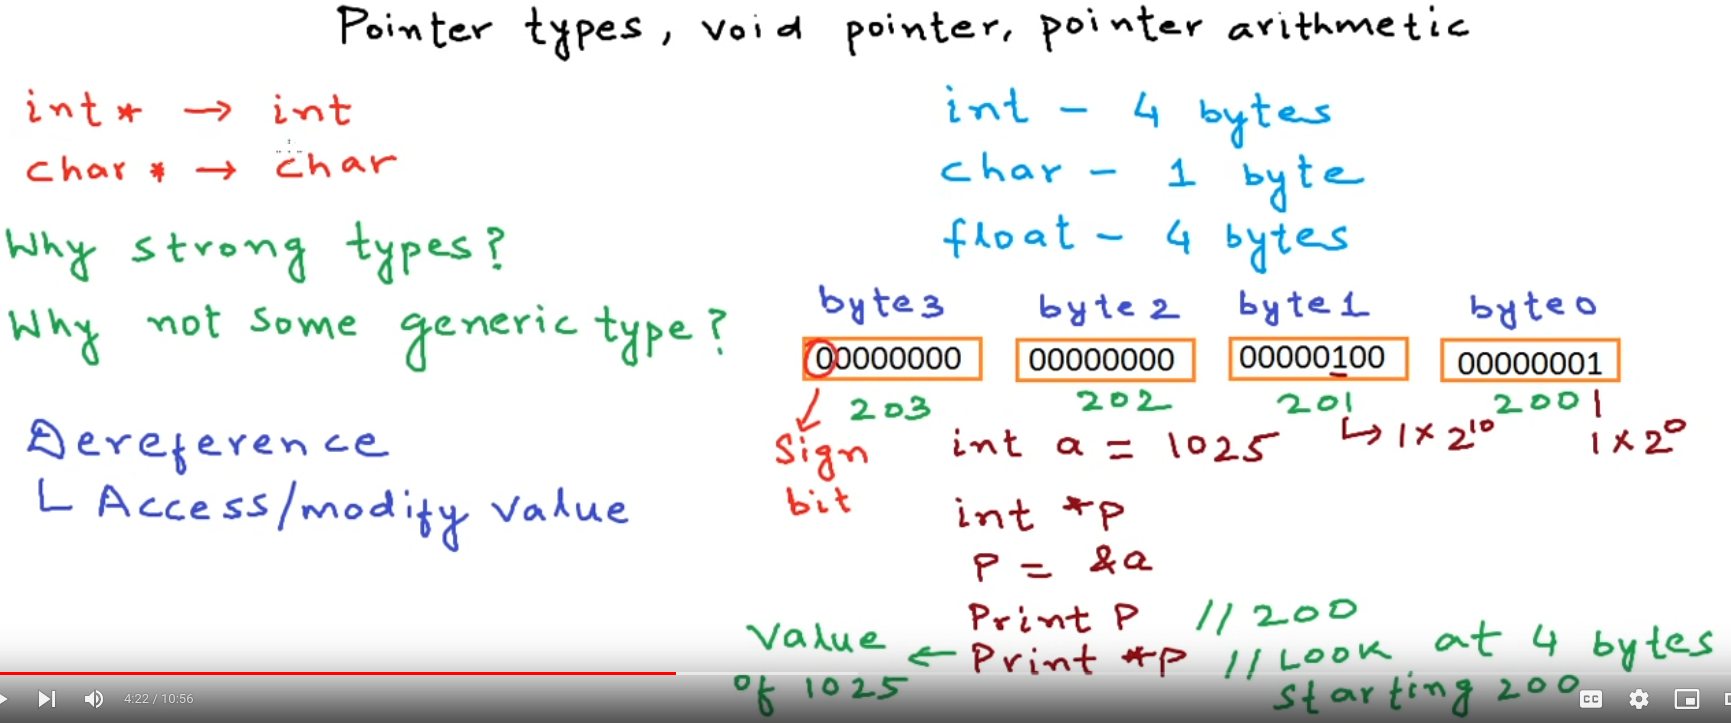 Pointer types, void pointer, pointer arithmetic
int* → int
char* → char
Why strong types?
Why not some generic type?
Dereference
↳ Access/modify value
int - 4 bytes
char - 1 byte
float - 4 bytes
byte3 byte2 byte1 byte0
00000000 00000000 00000100 00000001
203 202 201 200
Sign bit
↳ 1 x 2^10
1 x 2^0
int a = 1025
int *p
P = &a
Print P // 200
Print *p // Look at 4 bytes starting 200
Value of 1025
4:22 / 10:56
CC